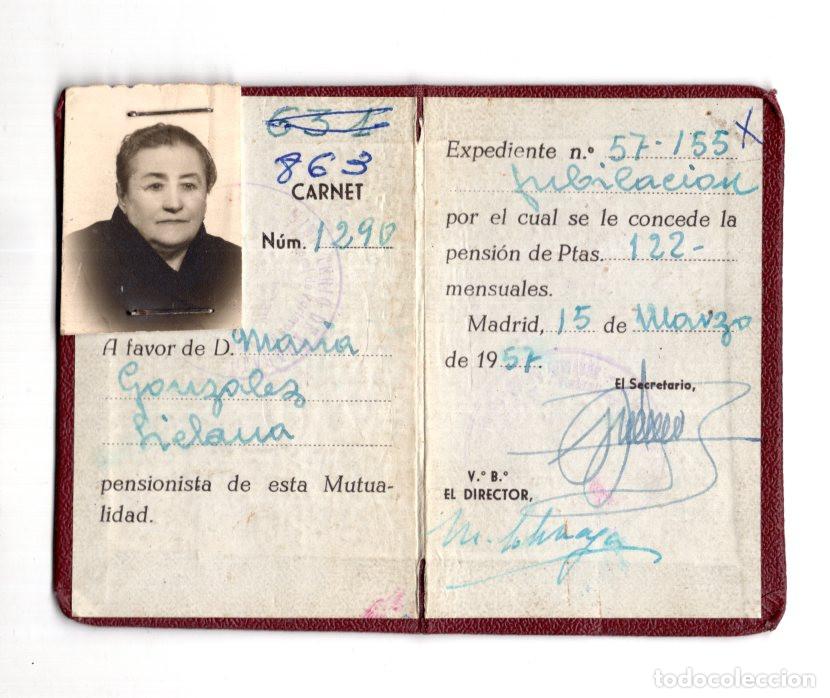 631
863
CARNET
Núm. 1290
A favor de D. Maria
Gonzalez
pensionista de esta Mutua-
lidad.
Expediente n.º 57-155 X
Jubilacion
por el cual se le concede la
pensión de Ptas. 122-
mensuales.
Madrid, 15 de Marzo
de 1957.
El Secretario,
V.º B.º
EL DIRECTOR,
todocoleccion